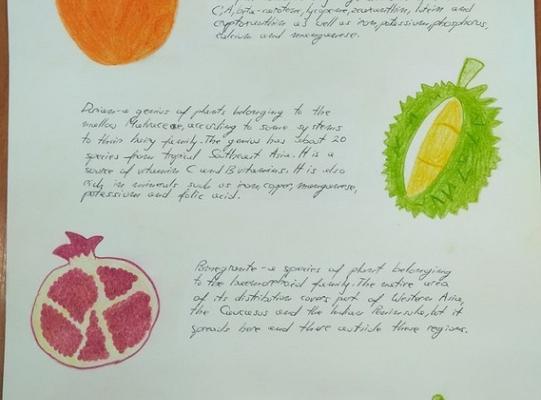 C, A, beta-carotene, lycopene, zeaxanthin, lutein and
cryptoxanthin as well as iron, potassium, phosphorus,
calcium and manganese.
Durian - a genius of plants belonging to the
mallow Malvaceae, according to some systems
to their family. The genus has about 20
species from tropical Southeast Asia. It is a
source of vitamin C and B vitamins. It is also
rich in minerals such as iron, coper, manganese,
potassium and folic acid.
Pomegranate - a species of plant belonging
to the family. The entire area
of its distribution covers part of Western Asia,
the Caucasus and the Indian Peninsula, but it
spreads here and there outside these regions.